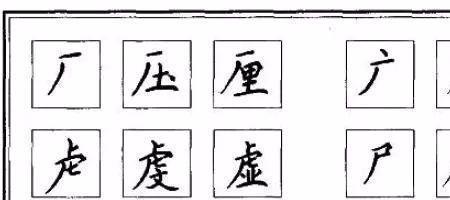 厂 压 厘 广
虍 虔 虚 尸